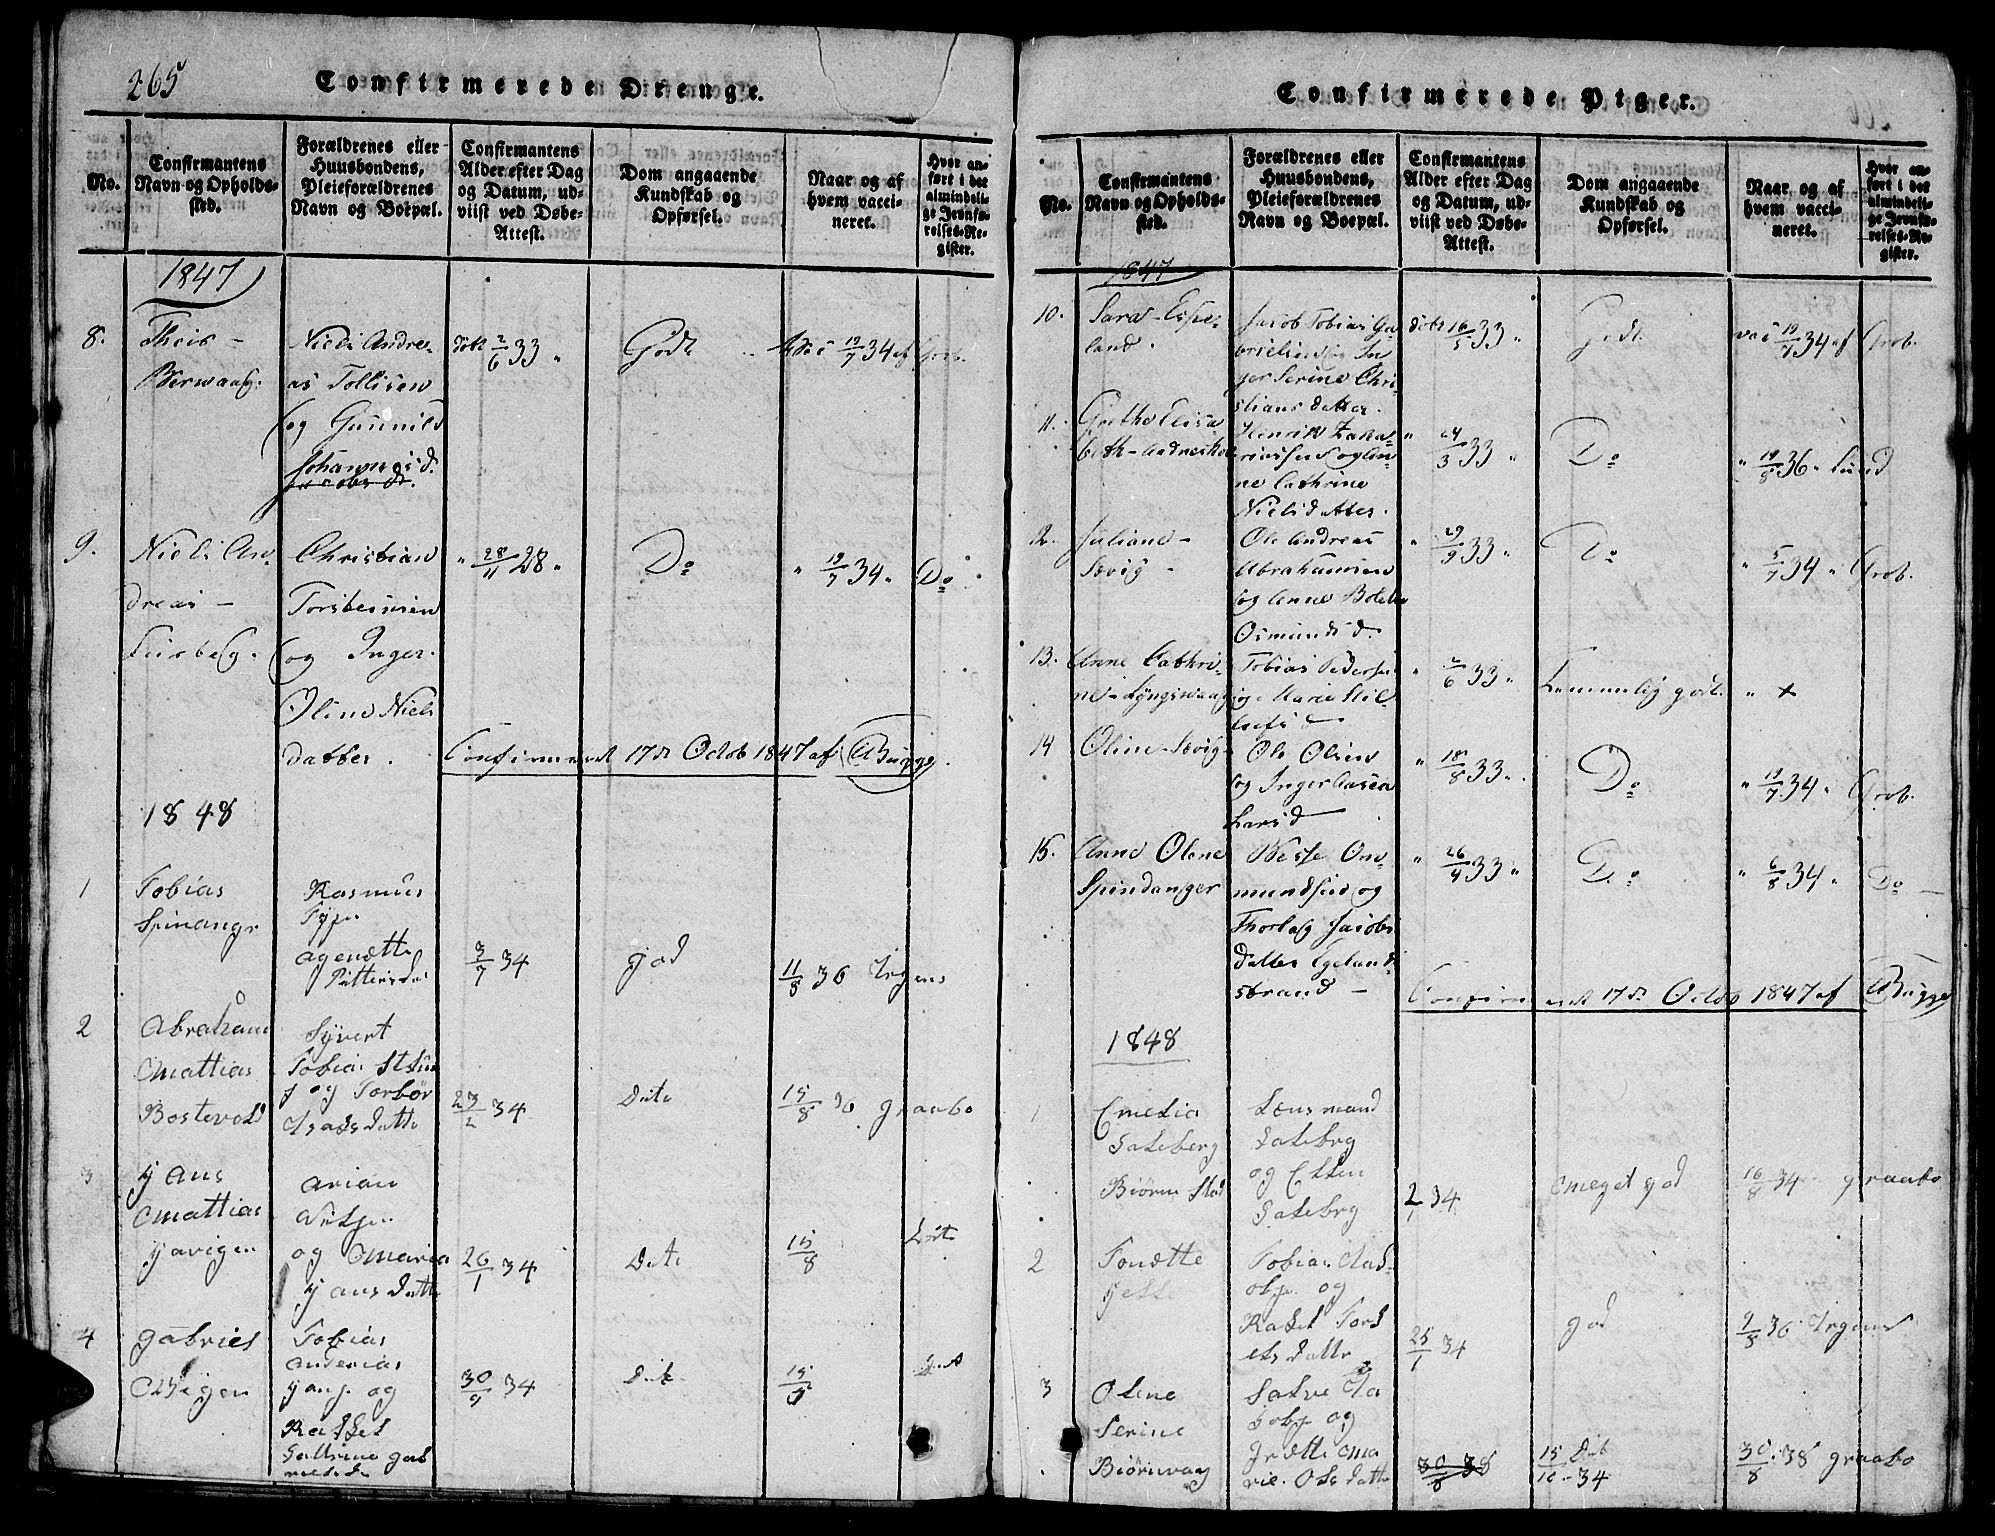 265
Confirmerede Drenge.
No.
Confirmantens
Navn og Opholds-
sted.
Forældrenes eller
Huusbondens,
Pleieforældrenes
Navn og Boepæl.
Confirmantens
Alder efter Dag
og Datum, ud-
viist ved Døbe-
Attest.
Dom angaaende
Kundskab og
Opførsel.
Naar og af
hvem vacci-
neret.
Hvor an-
ført i det
almindeli-
ge Jevnfø-
relses-Re-
gister.
1847
8.
Theis -
Niels Andre-
as Tollisen
og Gunnild
Johannesd.
Jacobsd.
døbt 2/6 33 "
Godt
Vac 19/7 34 af Grob.
9.
Niels An-
dreas -
Christian
Torstensen
og Inger
Oline Niels
datter.
" 28/11 28 "
Do
" 19/7 34 "
Do
Confirmeret 17de Octob 1847 af Bugge
1848
1
Tobias
Spinangr
Rasmus
agenætte
Pittersdat
3/7 34
god
11/8 36 Irgens
2
Abraham
Mattias
Bostevold
Syvert
Tobias
og Torbör
Isaksdatte
23/2 34
Dito
15/8 36 graabo
3
Hans
Mattias
Havigen
arian
og Maria
Hansdatte
26/1 34
Dito
15/8
Dito
4
Gabriel
Tobias
anderias
Hansen og
Rakkel
gab
rielsd
30/9 34
Dito
15/8
Confirmerede Piger.
No.
Confirmantens
Navn og Opholds-
sted.
Forældrenes eller
Huusbondens,
Pleieforældrenes
Navn og Boepæl.
Confirmantens
Alder efter Dag
og Datum, ud-
viist ved Døbe-
Attest.
Dom angaaende
Kundskab og
Opførsel.
Naar og af
hvem vacci-
neret.
Hvor an-
ført i det
almindeli-
ge Jevnfø-
relses-Re-
gister.
1847
10.
Sara Espe-
land.
Jacob Tobias Ga-
brielsen og In-
ger Serine Chri-
stiansdatter.
døbt 16/5 33 "
Godt.
vac 19/7 34 af Grob.
11.
Grethe Elisa
beth
Henrik Zaka-
riassen og An-
ne Cathrine
Nielsdatter.
" 24/3 33 "
Do
" 19/8 36 " Lund
12.
Juliane -
Sævig -
Ole Andreas
Abrahamsen
og Anne Bolette
Osmundsd.
" 29/9 33 "
Do
" 5/7 34 " Grob.
13.
Anne Cathri-
ne - Lyngswaag
Tobias Pedersen
og Marie
" 2/6 33 "
Temmelig godt.
" x
14
Oline Sævig
Ole Olsen
og Inger Aasea
Larsd
" 18/8 33 "
Do
" 19/7 34 " Grob.
15.
Anne Olene
Spindanger
Wesse Om-
mundsen og
Thorlag Jacobs
datter Egeland-
strand -
" 26/4 33 "
Do
" 6/8 34 "
Do -
Confirmeret 17de Octob 1847 af Bugge
1848
1
Emelia
Saleberg
Biørnestad
Lensmand
Salebrg
og Ellen
Salebrg
2/1 34
Meget god
16/8 34 graabo
2
Tonætte
Tobias Aad-
olp. og
Rakel Tord
elsdattr
25/1 34
god
9/8 36 Irgens
3
Olene
Serine
Biørnwaag
Salve Ja
kobs og
Ma
rie Olsdatte
30/8 38
15/10 34 Dit
30/8 38 graabo